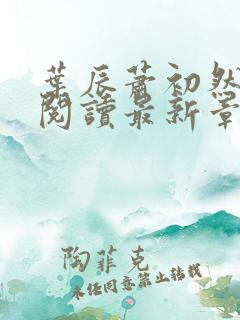 葉辰蕭初然
閱讀最新章
陶菲克
未經同意禁止轉載